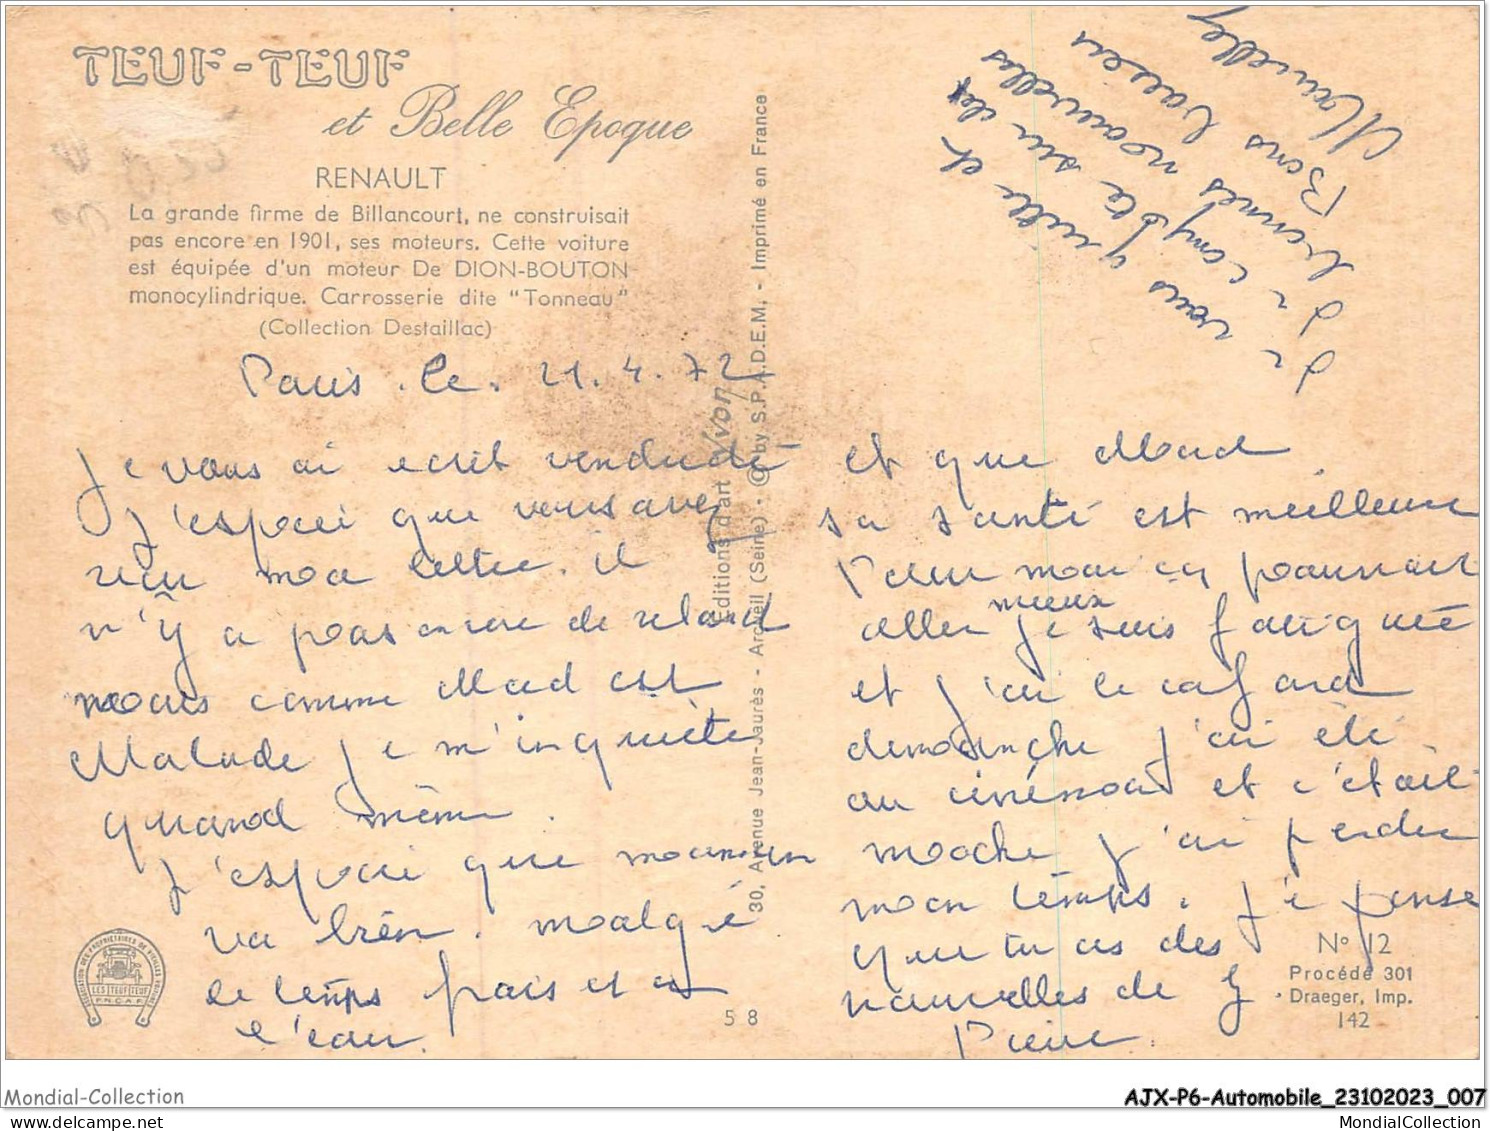 TEUF-TEUF
et Belle Epoque
RENAULT
La grande firme de Billancourt, ne construisait
pas encore en 1901, ses moteurs. Cette voiture
est équipée d'un moteur De DION-BOUTON
monocylindrique. Carrosserie dite "Tonneau"
(Collection Destaillac)
Paris. le. 21.4.72
Je vous ai ecrit vendredi
j'espere que vous avez
reçu ma lettre. il
n'y a pas encore de retard
mais comme Mad est
Malade je m'inquiète
quand même.
J'espere que maman
va bien. malgré
le temps frais et
l'eau.
et que Mad
sa santé est meilleure
Pour moi ça pourrait
aller mieux je suis fatigué
et j'ai le cafard
dimanche j'ai été
au cinéma et c'était
moche j'ai perdu
mon temps. Je pense
que tu as des
nouvelles de
Pierre.
Je vous quitte et
je compte sur des
bonnes nouvelles
Bons baisers
Editions d'art Yvon
30, Avenue Jean-Jaurès - Arcueil (Seine) - © by S.P.A.D.E.M. - Imprimé en France
ASSOCIATION DES PROPRIETAIRES DE VIEILLES VOITURES
LES TEUF TEUF
F.N.C.A.F.
58
N° 12
Procédé 301
Draeger, Imp.
142
Mondial-Collection
AJX-P6-Automobile_23102023_007
mondialcollection.net
MondialCollection